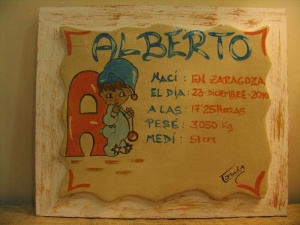 ALBERTO
NACÍ: EN ZARAGOZA
EL DIA: 23-DICIEMBRE-2010
A LAS: 17'25 HORAS
PESÉ: 3,050 Kg
MEDÍ: 51 cm
A